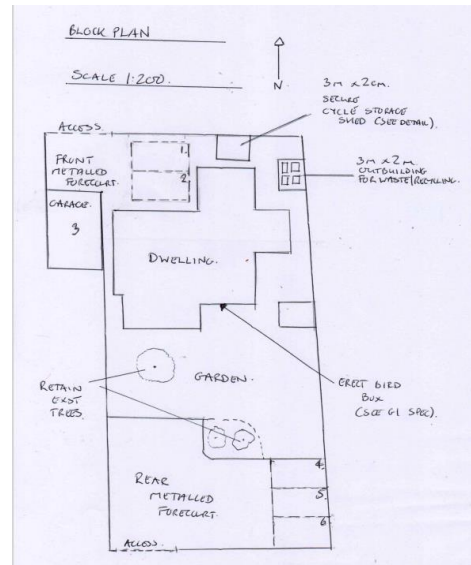 BLOCK PLAN
SCALE 1:200.
N
3m x 2cm.
SECURE
CYCLE STORAGE
SHED (SEE DETAIL).
ACCESS.
FRONT
METALLED
FORECOURT.
1.
2
3m x 2m
OUTBUILDING
FOR WASTE/RECYCLING.
GARAGE.
3
DWELLING.
RETAIN
EXST
TREES.
GARDEN.
ERECT BIRD
BOX
(SEE G1 SPEC).
REAR
METALLED
FORECOURT.
4.
5.
6.
ACCESS.